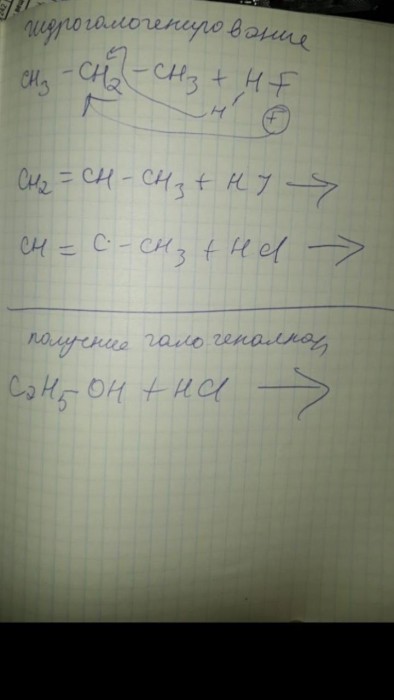 гидрогалогенирование
CH3 - CH2 - CH3 + HF
H F
CH2 = CH - CH3 + HJ →
CH = C - CH3 + HCl →
получение галогеналкан
C2H5 - OH + HCl →